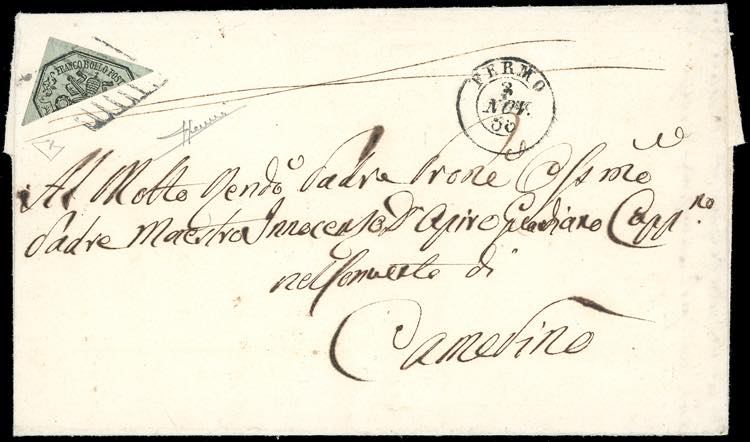 FRANCO BOLLO POST
FERMO
3
NOV.
Al Molto Rendo Padre Prone Ossmo
Padre Maestro Innocenzo D'Apiro Guardiano Cappno
nel Convento di
Camerino